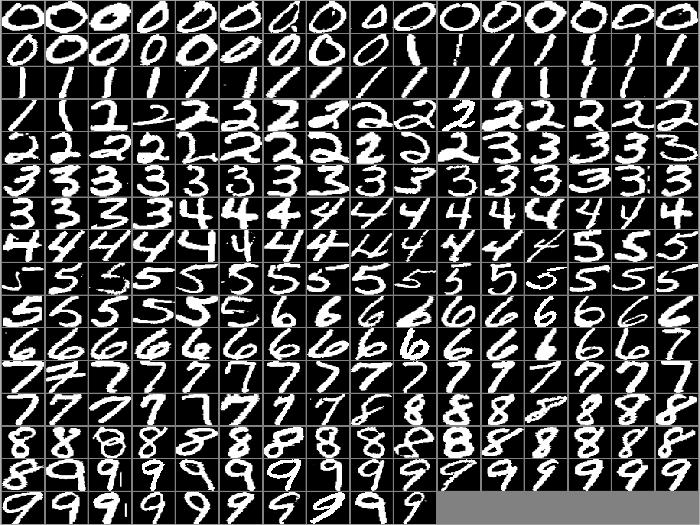 0 0 0 0 0 0 0 0 0 0 0 0 0 0 0 0
0 0 0 0 0 0 0 0 0 1 1 1 1 1 1 1
1 1 1 1 1 1 1 1 1 1 1 1 1 1 1 1
1 1 2 2 2 2 2 2 2 2 2 2 2 2 2 2
2 2 2 2 2 2 2 2 2 2 2 3 3 3 3 3
3 3 3 3 3 3 3 3 3 3 3 3 3 3 3 3
3 3 3 3 4 4 4 4 4 4 4 4 4 4 4 4
4 4 4 4 4 4 4 4 4 4 4 4 4 5 5 5
5 5 5 5 5 5 5 5 5 5 5 5 5 5 5 5
5 5 5 5 5 5 6 6 6 6 6 6 6 6 6 6
6 6 6 6 6 6 6 6 6 6 6 6 6 6 6 7
7 7 7 7 7 7 7 7 7 7 7 7 7 7 7 7
7 7 7 7 7 7 7 7 8 8 8 8 8 8 8 8
8 8 8 8 8 8 8 8 8 8 8 8 8 8 8 8
8 9 9 9 9 9 9 9 9 9 9 9 9 9 9 9
9 9 9 9 9 9 9 9 9 9